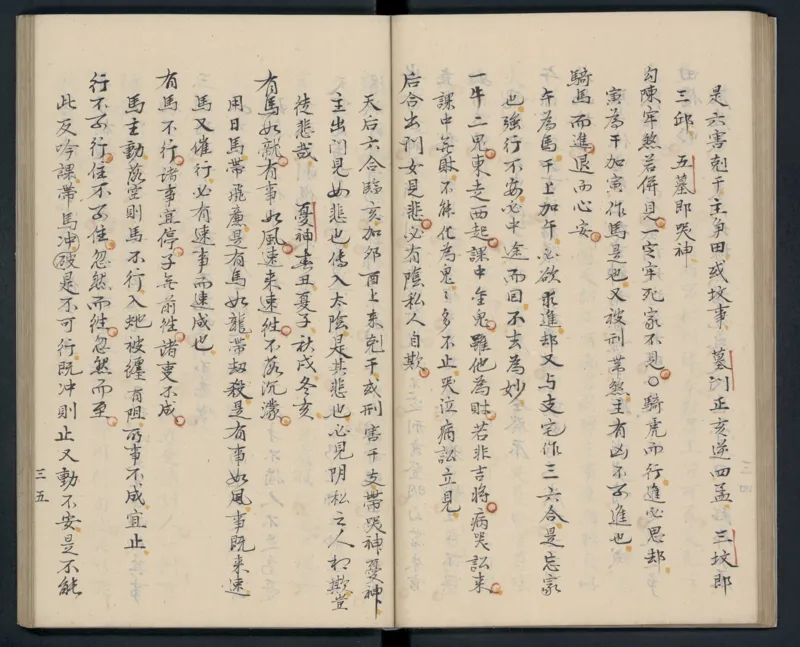 是六害剋干主争田或坟事　墓门正亥逆四孟　三坟即
三邱　五墓即哭神
勾陳牢煞若併見一定牢死家不見〇騎虎而行進必思却
寅為干加寅作馬是也又被刑帯煞主有凶不可進也
騎馬而進退而心安
午為馬干上加午必欲求進却又与支宅作三六合是忘家
也強行不安必中途而回不去為妙
一牛二鬼東走西起課中金鬼雖他為財若非吉將病哭訟来
課中無財不能化為鬼〻多不止哭泣病訟立見
后合出刑女是悲必有陰私人自欺
天后六合臨亥加夘酉上来剋干或刑害干支帯哭神憂神
主出門見女悲也傳入太陰是其悲也必見阴私之人相欺豈
徒悲哉　憂神春丑夏子秋戌冬亥
有馬如龍有事如風速来速徃不落沉濛
用日馬帯飛廉是有馬如龍帯劫殺是有事如風事既来速
馬又催行必有速事而速成也
有馬不行諸事宜停子无前徃諸事不成
馬主動落空則馬不行入地被纏有阻所事不成宜止
行不可行住不可住忽然而徃忽然而至
此反吟課帯馬冲破是不可行既冲則止又動不安是不能
三五